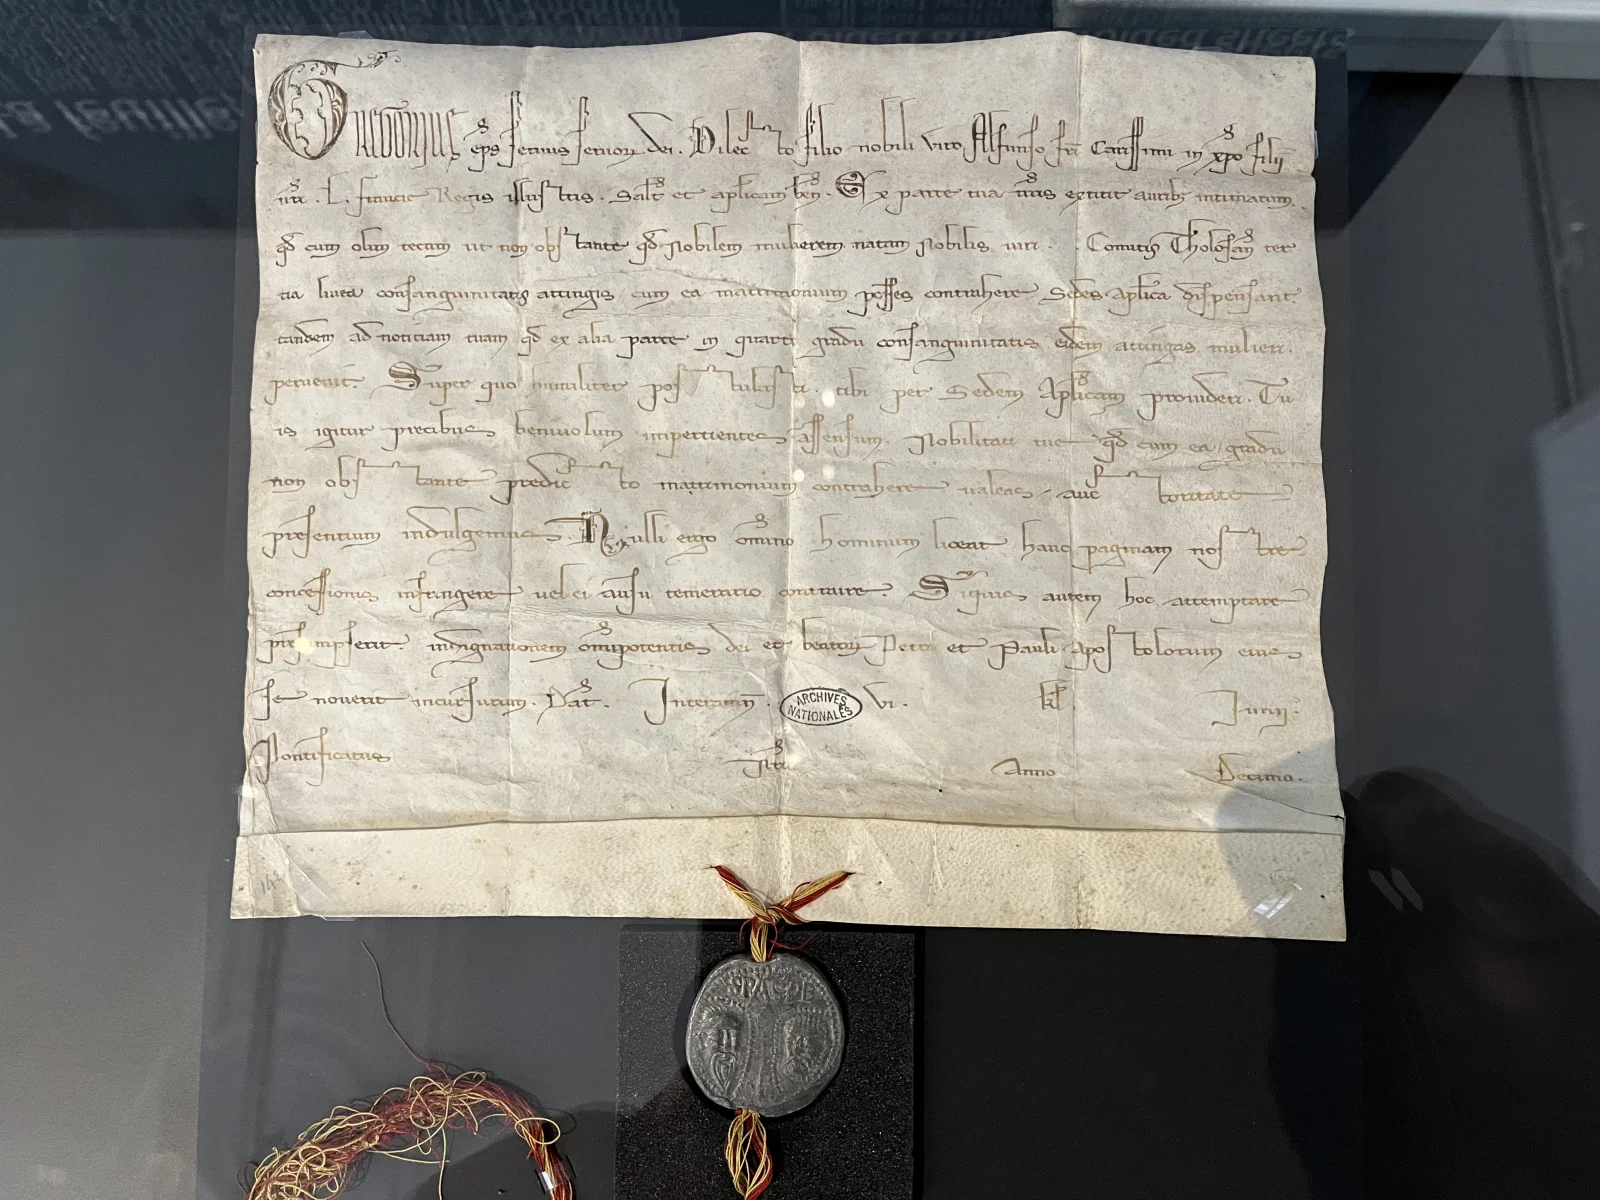 Gregorius eps seruus seruoru dei. Dilecto filio nobili uiro Alfunso fri Carissimi in xpo filii
nri. L. francie Regis illustris. Salt et aplicam ben. Ex parte tua nris extitit auribz intimatum
qd cum olim tecum ut non obstante qd Nobilem mulierem natam Nobilis uiri . . Comitis Tholosan ter
tia linea consanguinitatis attingis cum ea matrimonium posses contrahere Sedes Aplica dispensant
tandem ad notitiam tuam qd ex alia parte in quarto gradu consanguinitatis eidem attingas mulieri.
peruenit. Super quo humiliter postulasti. tibi per Sedem Aplicam prouideri. Tu
is igitur precibus beniuolum impertientes assensum. Nobilitati tue qd cum ea gradu
non obstante predicto matrimonium contrahere ualeas auctoritate
presentium indulgemus. Nulli ergo omino hominum liceat hanc paginam nostre
concessionis infringere uel ei ausu temerario contraire. Siquis autem hoc attemptare
presumpserit. indignationem omipotentis dei et beatoru Petri et Pauli Apostolorum eius
se nouerit incursurum. Dat. Interamn. VI. kl. Junii.
Pontificatus nri Anno Decimo.
ARCHIVES
NATIONALES
SPASPE